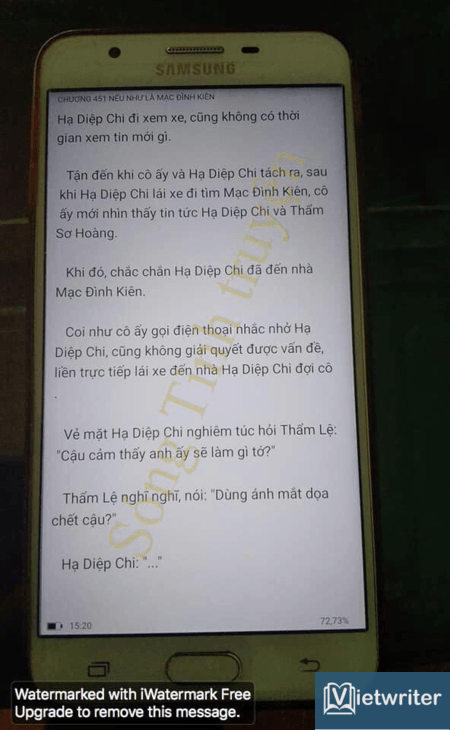 SAMSUNG
CHƯƠNG 451 NẾU NHƯ LÀ MẠC ĐÌNH KIÊN
Hạ Diệp Chi đi xem xe, cũng không có thời
gian xem tin mới gì.
Tận đến khi cô ấy và Hạ Diệp Chi tách ra, sau
khi Hạ Diệp Chi lái xe đi tìm Mạc Đình Kiên, cô
ấy mới nhìn thấy tin tức Hạ Diệp Chi và Thẩm
Sơ Hoàng.
Khi đó, chắc chắn Hạ Diệp Chi đã đến nhà
Mạc Đình Kiên.
Coi như cô ấy gọi điện thoại nhắc nhở Hạ
Diệp Chi, cũng không giải quyết được vấn đề,
liền trực tiếp lái xe đến nhà Hạ Diệp Chi đợi cô
.
Vẻ mặt Hạ Diệp Chi nghiêm túc hỏi Thẩm Lệ:
"Cậu cảm thấy anh ấy sẽ làm gì tớ?"
Thẩm Lệ nghĩ nghĩ, nói: "Dùng ánh mắt dọa
chết cậu?"
Hạ Diệp Chi: "..."
Song Tinh truyện
15:20
72,73%
Watermarked with iWatermark Free
Upgrade to remove this message.
Vietwriter